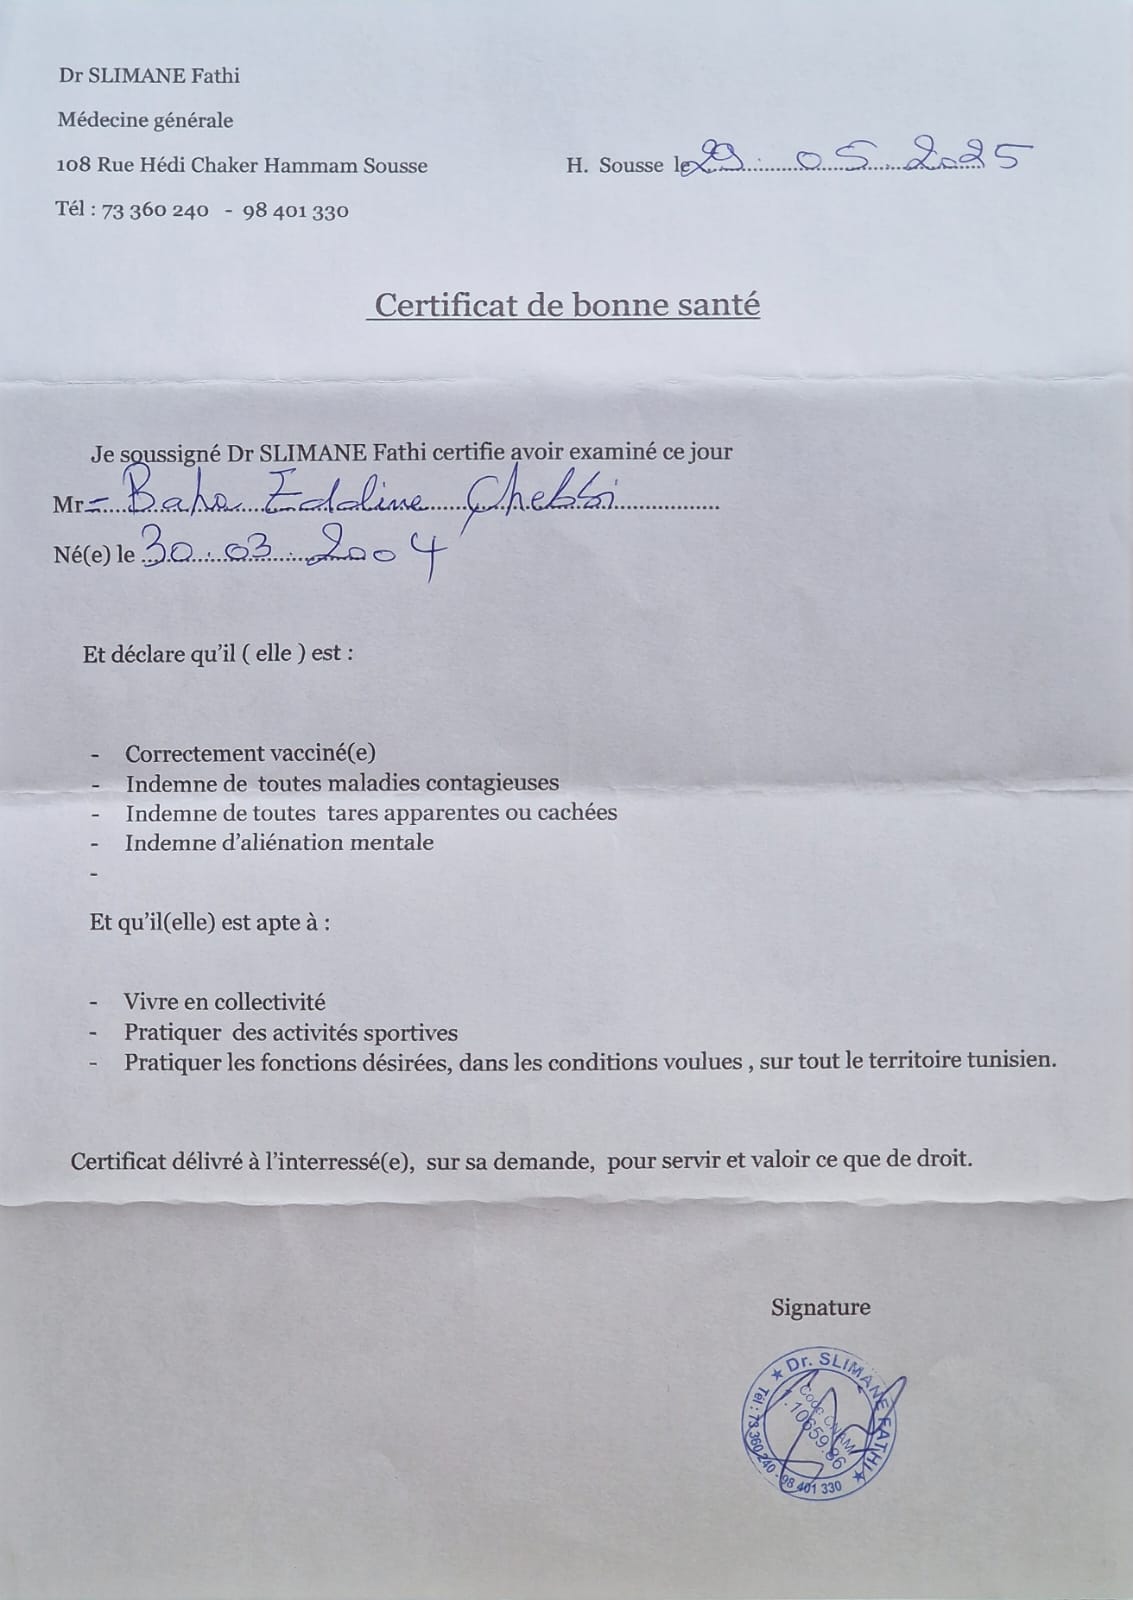 Dr SLIMANE Fathi
Médecine générale
108 Rue Hédi Chaker Hammam Sousse
H. Sousse le 29.05.2025
Tél : 73 360 240 - 98 401 330
Certificat de bonne santé
Je soussigné Dr SLIMANE Fathi certifie avoir examiné ce jour
Mr Baha Eddine Chebbi
Né(e) le 30.03.2004
Et déclare qu'il ( elle ) est :
- Correctement vacciné(e)
- Indemne de toutes maladies contagieuses
- Indemne de toutes tares apparentes ou cachées
- Indemne d'aliénation mentale
-
Et qu'il(elle) est apte à :
- Vivre en collectivité
- Pratiquer des activités sportives
- Pratiquer les fonctions désirées, dans les conditions voulues , sur tout le territoire tunisien.
Certificat délivré à l'interressé(e), sur sa demande, pour servir et valoir ce que de droit.
Signature
★ Dr. SLIMANE FATHI ★
Tél : 73 360 240 - 98 401 330
Code CNAM